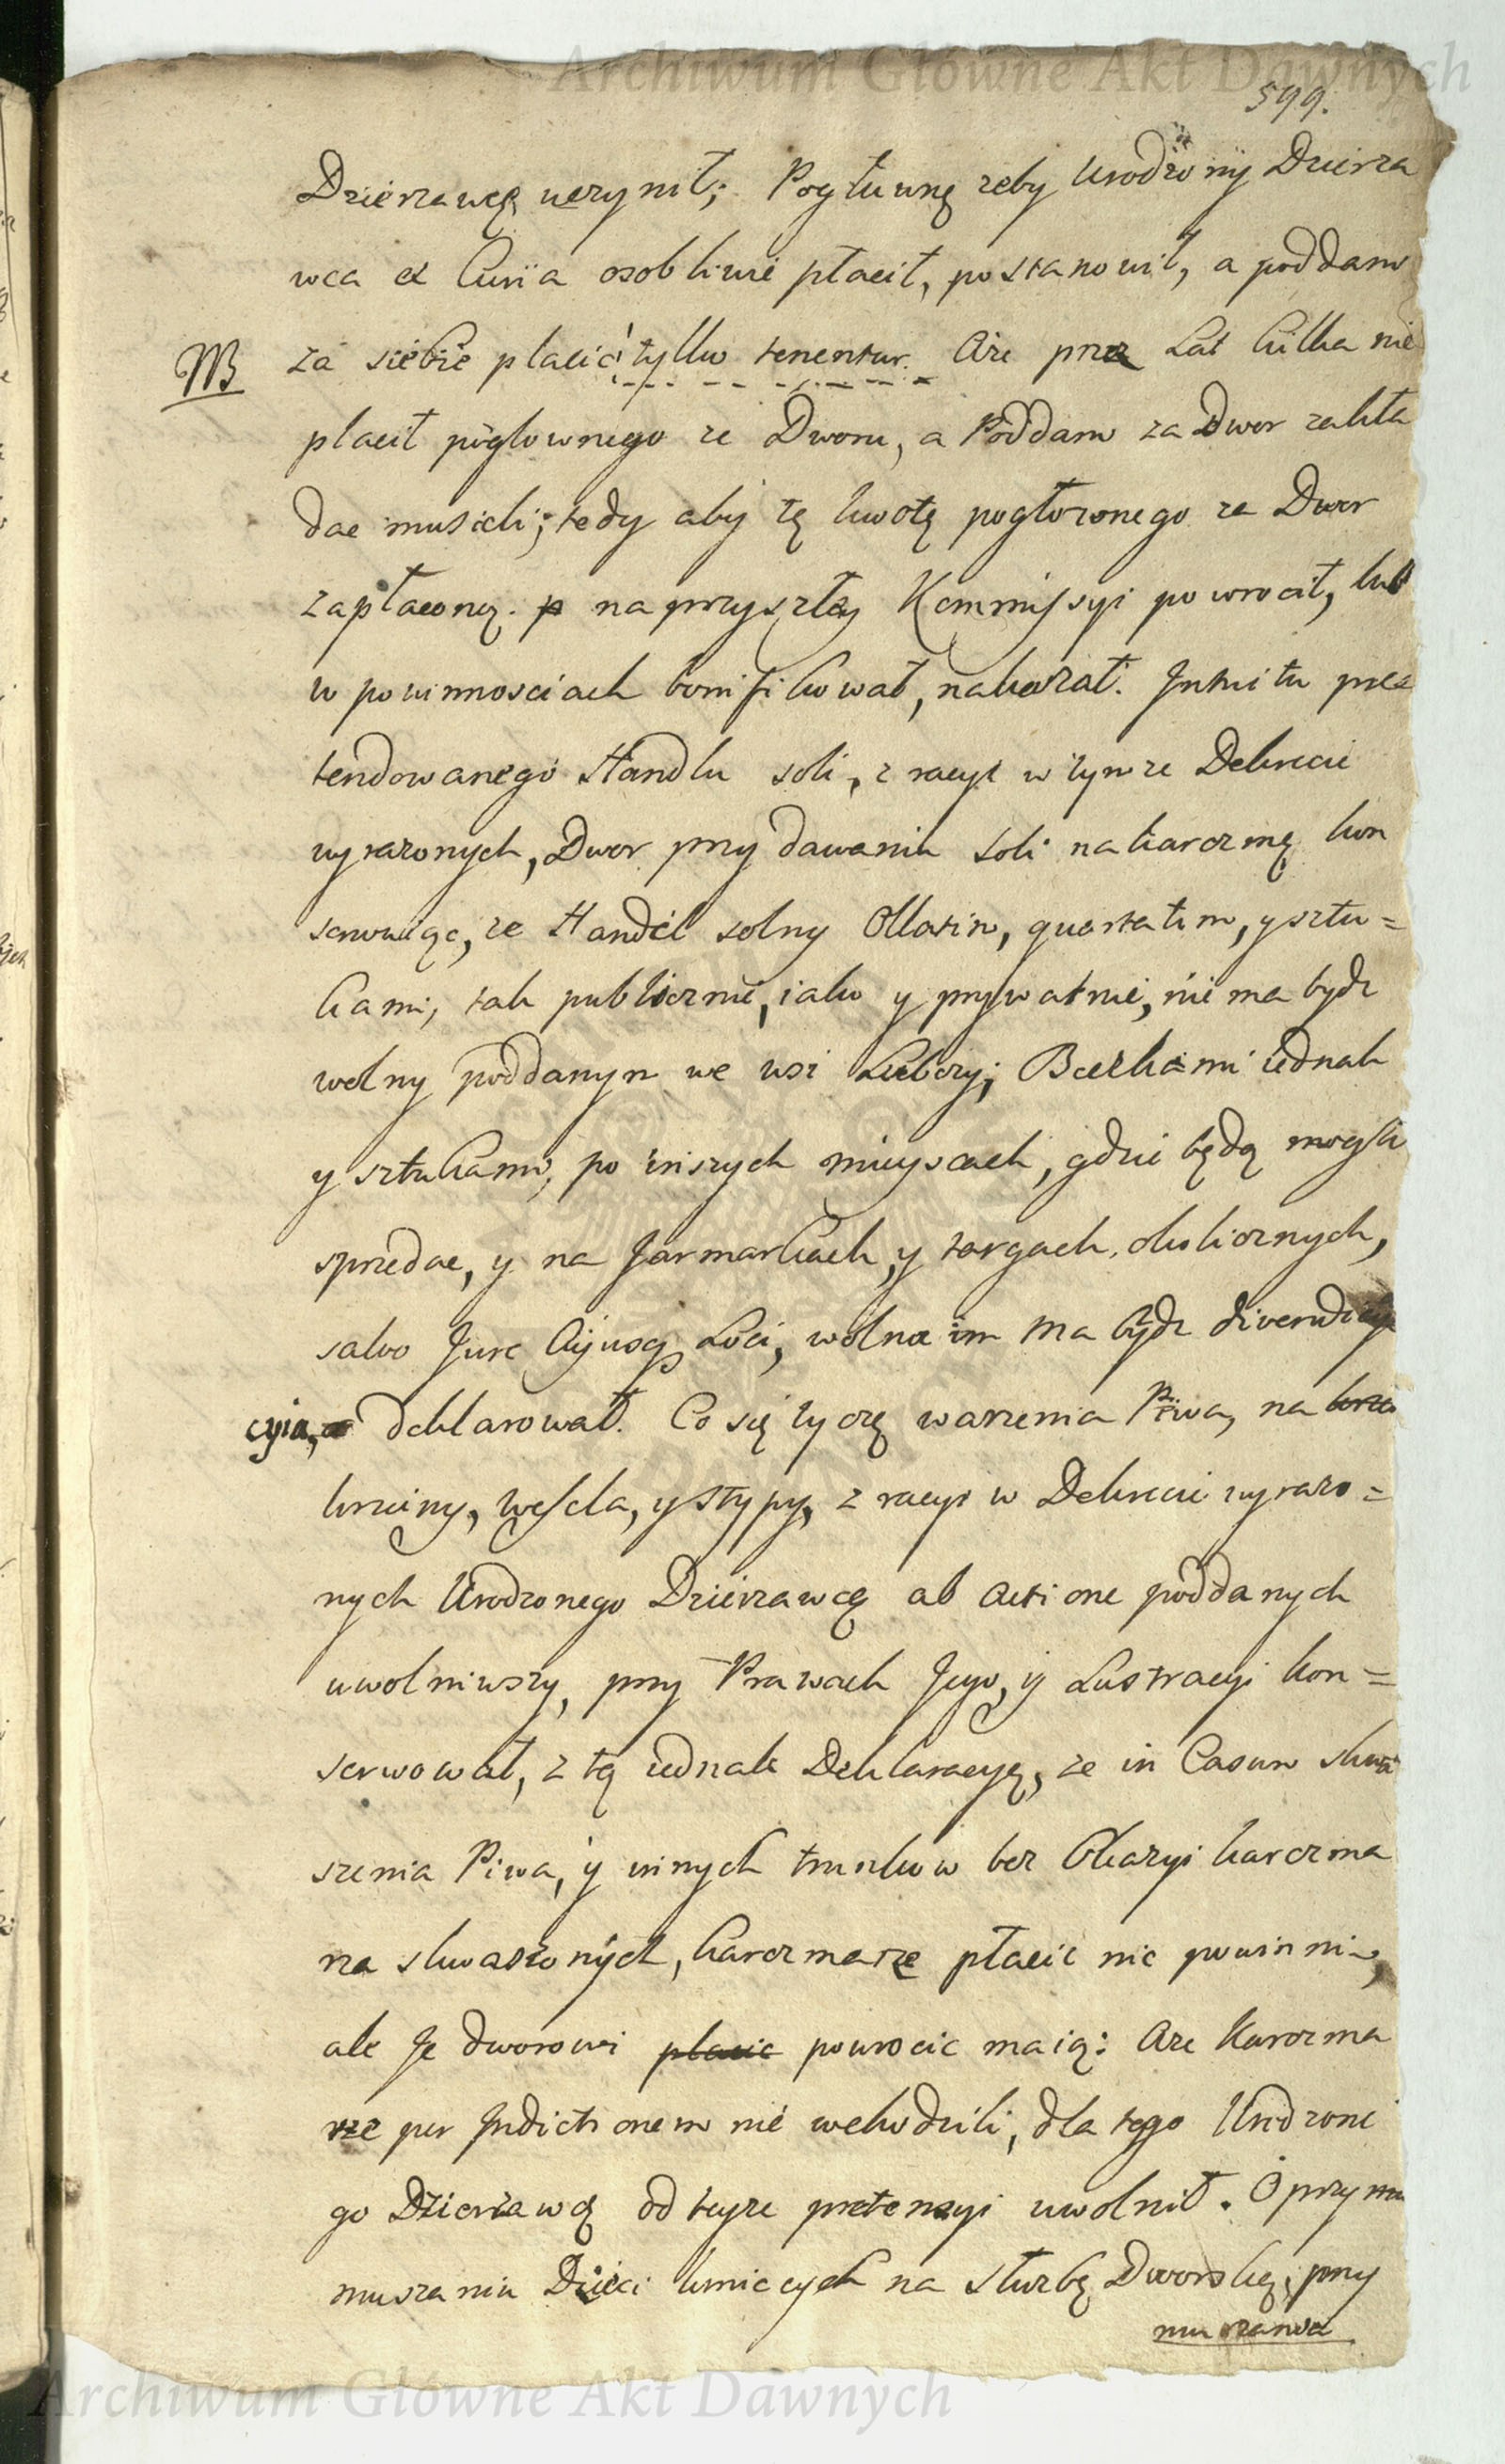 Archiwum Główne Akt Dawnych
599.
Dzierzawcę uczynił; Pogłuwnę zeby Urodzony Dzierza
wca ex Curia osobliwie płacił, postanowił, a poddani
NB za siebie placić tylko tenentur. Aże prze Lat kilka nie
placił pogłownego ze Dworu, a Poddani za Dwor zakła
dac musieli; tedy aby tę kwotę pogłownego za Dwor
zapłaconą. na przyszłey Kommissyi powrocił, lub
w powinnosciach bonifikował, nakazał. Intuitu prae
tendowanego Handlu soli, z racyi w tymze Dekrecie
wyrazonych, Dwor przy dawaniu soli na karczmę kon
serwuiąc, ze Handel solny Ollatim, quartatim, y sztu=
kami, tak publicznie, iako y prywatnie, nie ma bydz
wolny poddanym we wsi Luboczy; Beczkami iednak
y sztukami, po inszych mieyscach, gdzie będą mogli
spredac, y na Jarmarkach, y targach, okolicznych,
salvo Jure Cujusq Loci, wolna im ma bydz divendi
cyia, deklarował. Co się tyczę warzenia Piwa, na
krzciny, wesela, y stypy, z racyi w Dekrecie wyrazo=
nych Urodzonego Dzierzawcę ab actione poddanych
uwolniwszy, przy Prawach Jego, y Lustracyi kon=
serwował, z tą iednak Deklaracyą, ze in Casum skwa
szenia Piwa, y innych trunkow bez Okazyi karczma
rza skwaszonych, karczmarze płacic nie powinni,
ale Je dworowi placic powrocic maią: Aze Karczma
rze per Indictionem nie wchodzili, dla tego Urodzone
go Dzierzawcę od teyze pretensyi uwolnił. O przymu
muszaniu Dzieci kmiecych na służbę Dworską, przy
muszania
Archiwum Główne Akt Dawnych